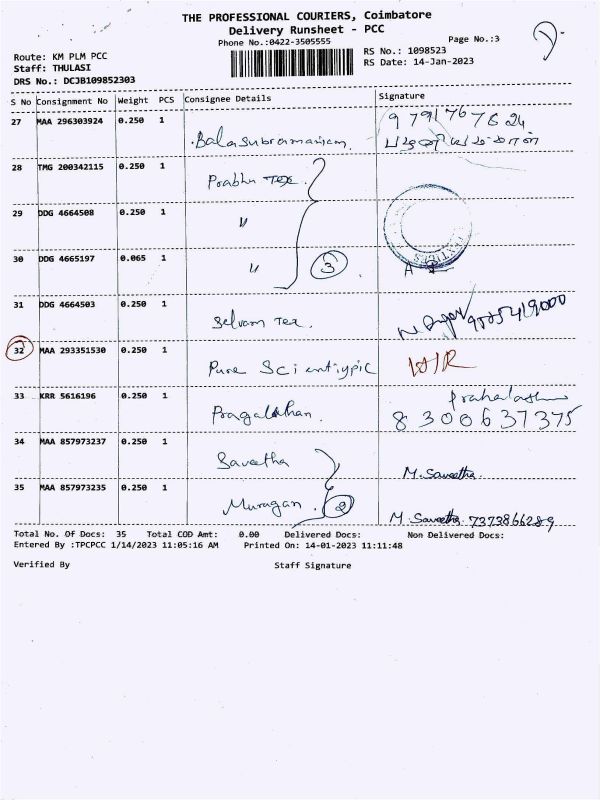 THE PROFESSIONAL COURIERS, Coimbatore
Delivery Runsheet - PCC
Phone No.:0422-3505555
Page No.:3
Route: KM PLM PCC
RS No.: 1098523
Staff: THULASI
RS Date: 14-Jan-2023
DRS No.: DCJB109852303
S No Consignment No Weight PCS Consignee Details Signature
27 MAA 296303924 0.250 1 Balasubramaniam 9791767624
28 TMG 200342115 0.250 1 Prabhu Tex.
29 DDG 4664508 0.250 1 "
30 DDG 4665197 0.065 1 " 3
31 DDG 4664503 0.250 1 Selvam Tex.
32 MAA 293351530 0.250 1 Pure Scientiypic
33 KRR 5616196 0.250 1 8300637375
34 MAA 857973237 0.250 1 Saveetha M. Saveetha.
35 MAA 857973235 0.250 1 Murugan. 2 M Saveetha 7373866289
Total No. Of Docs: 35 Total COD Amt: 0.00 Delivered Docs: Non Delivered Docs:
Entered By :TPCPCC 1/14/2023 11:05:16 AM Printed On: 14-01-2023 11:11:48
Verified By Staff Signature